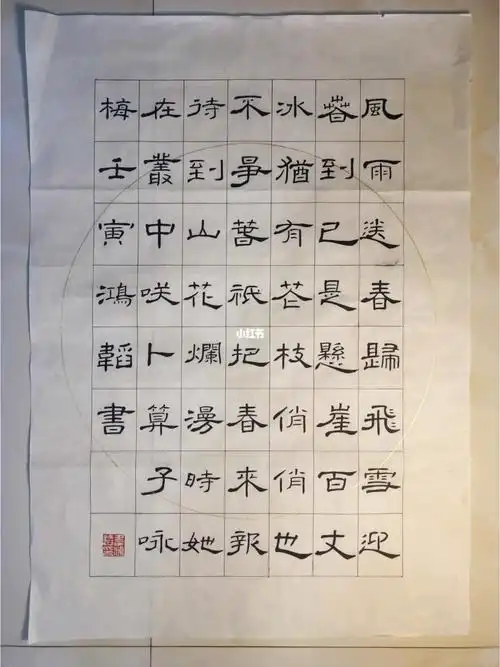 風雨送春歸飛雪迎
萅到已是懸崖百丈
冰猶有花枝俏俏也
不爭萅祇把春來報
待到山花爛漫時她
在叢中咲卜算子咏
梅壬寅鴻韜書
小红书